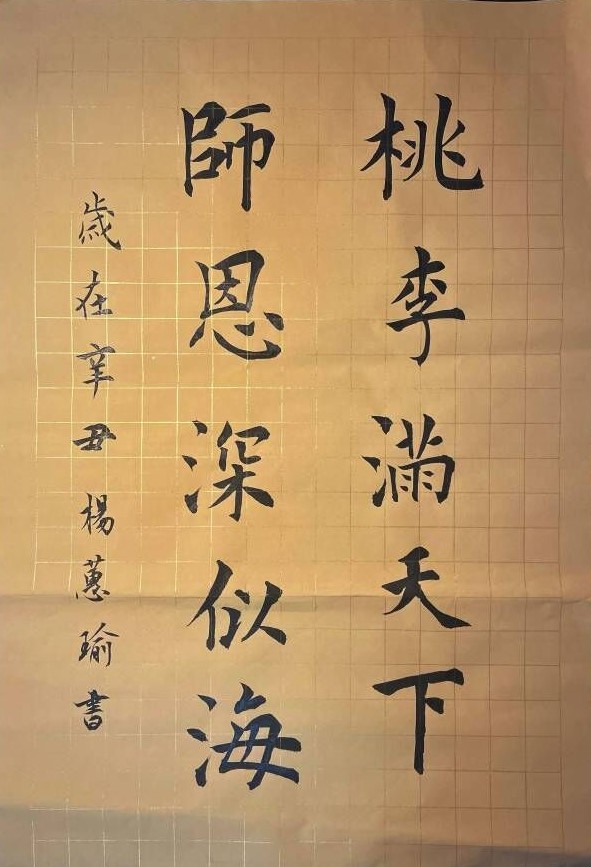 桃李滿天下
師恩深似海
歲在辛丑楊蕙瑜書